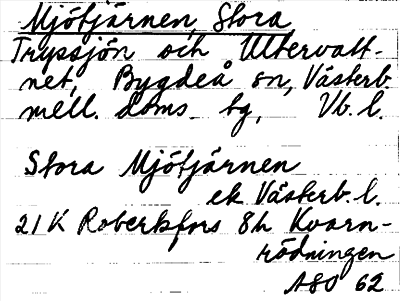 Mjötjärnen, Stora
Tryssjön och Uttervatt-
net, Bygdeå sn, Västerb.
mell. doms. tg, Vb. l.
Stora Mjötjärnen
ek Västerb. l.
21K Robertsfors 8h Kvarn-
rödningen
ASO 62